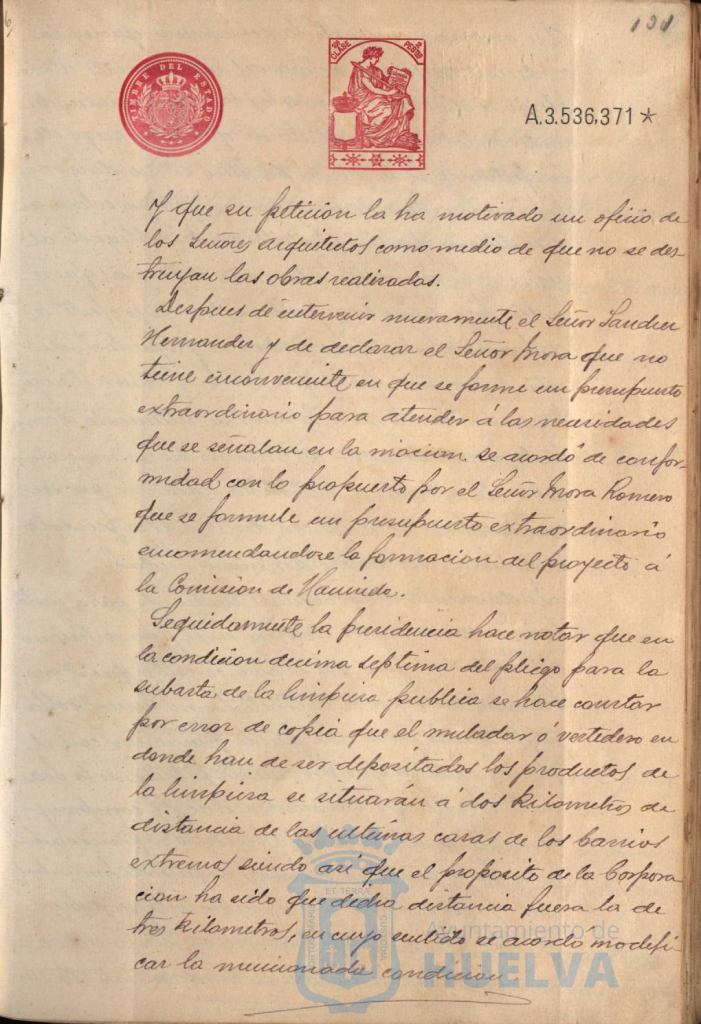 131
TIMBRE DEL ESTADO
CLASE
A.3.536.371*
Y que su petición la ha motivado un oficio de
los Señores arquitectos como medio de que no se des-
truyan las obras realizadas.
Despues de intervenir nuevamente el Señor Sanchez
Hernandez y de declarar el Señor Mora que no
tiene inconveniente en que se forme un presupuesto
extraordinario para atender á las necesidades
que se señalan en la mocion se acordó de confor-
midad con lo propuesto por el Señor Mora Romero
que se formule un presupuesto extraordinario
encomendandose la formacion del proyecto á
la Comision de Hacienda.
Seguidamente la presidencia hace notar que en
la condicion decima septima del pliego para la
subasta de la limpieza publica se hace constar
por error de copia que el muladar ó vertedero en
donde han de ser depositados los productos de
la limpieza se situarán á dos kilometros de
distancia de las ultimas casas de los barrios
extremos siendo así que el proposito de la Corpora
cion ha sido que dicha distancia fuera la de
tres kilometros, en cuyo sentido se acordo modifi-
car la mencionada condicion
Ayuntamiento de
HUELVA